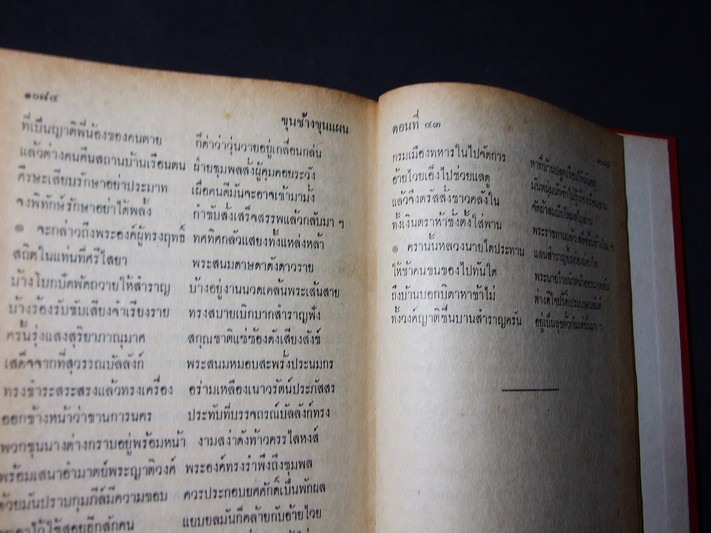 ๑๐๘๔
ขุนช้างขุนแผน
ที่เป็นญาติพี่น้องของคนตาย ก็ด่าว่าวุ่นวายอยู่เกลื่อนกลุ้ม
แล้วต่างคนคืนสถานบ้านเรือนตน ฝ่ายขุนพลสั่งผู้คุมคอยระวัง
ศีรษะเสียบรักษาอย่าประมาท เผื่อคนดีมันจะอาจเข้ามามั่ง
จงพิทักษ์รักษาอย่าได้พลั้ง กำชับสั่งเสร็จสรรพแล้วกลับมา ฯ
๏ จะกล่าวถึงพระองค์ผู้ทรงฤทธิ์ ทศทิศกลัวแสยงทั้งแหล่งหล้า
สถิตในแท่นที่ศรีไสยา พระสนมดาษดาดังดาวราย
บ้างโบกปัดพัดถวายให้สำราญ บ้างอยู่งานนวดเคล้นพระเส้นสาย
บ้างร้องรับขับเสียงจำเรียงราย ทรงสบายเบิกบานสำราญฟัง
ครั้นรุ่งแสงสุริยาภาณุมาศ สกุณชาติแซ่ซ้องก้องเสียงสังข์
เสด็จจากที่สุวรรณบัลลังก์ พระสนมหมอบสะพรั่งประนมกร
ทรงชำระสระสรงแล้วทรงเครื่อง อร่ามเหลืองเนาวรัตน์ประภัสสร
ออกข้างหน้าว่าขานการนคร ประทับที่บรรจถรณ์บัลลังก์ทรง
พวกขุนนางต่างกราบอยู่พร้อมหน้า งามสง่าดังท้าวครรไลหงส์
พร้อมเสนาอำมาตย์พระญาติวงศ์ พระองค์ทรงรำพึงถึงขุนพล
ด้วยมันปราบกุมภีล์มีความชอบ ควรประกอบยศศักดิ์เป็นพักผล
เอาไว้ใช้สอยอีกสักคน แยบยลมันก็คล้ายกับอ้ายไวย
ตอนที่ ๔๓
กรมเมืองทหารในไปจัดการ
อ้ายไวยเอ็งไปช่วยแลดู
แล้วจึงตรัสสั่งชาวคลังใน
ทั้งเงินตราห้าชั่งตั้งใส่พาน
๏ ครานั้นหลวงนายได้ประทาน
ให้ข้าคนขนของไปทันใด
ถึงบ้านบอกบิดาหาช้าไม่
ทั้งวงศ์ญาติชื่นบานสำราญครัน